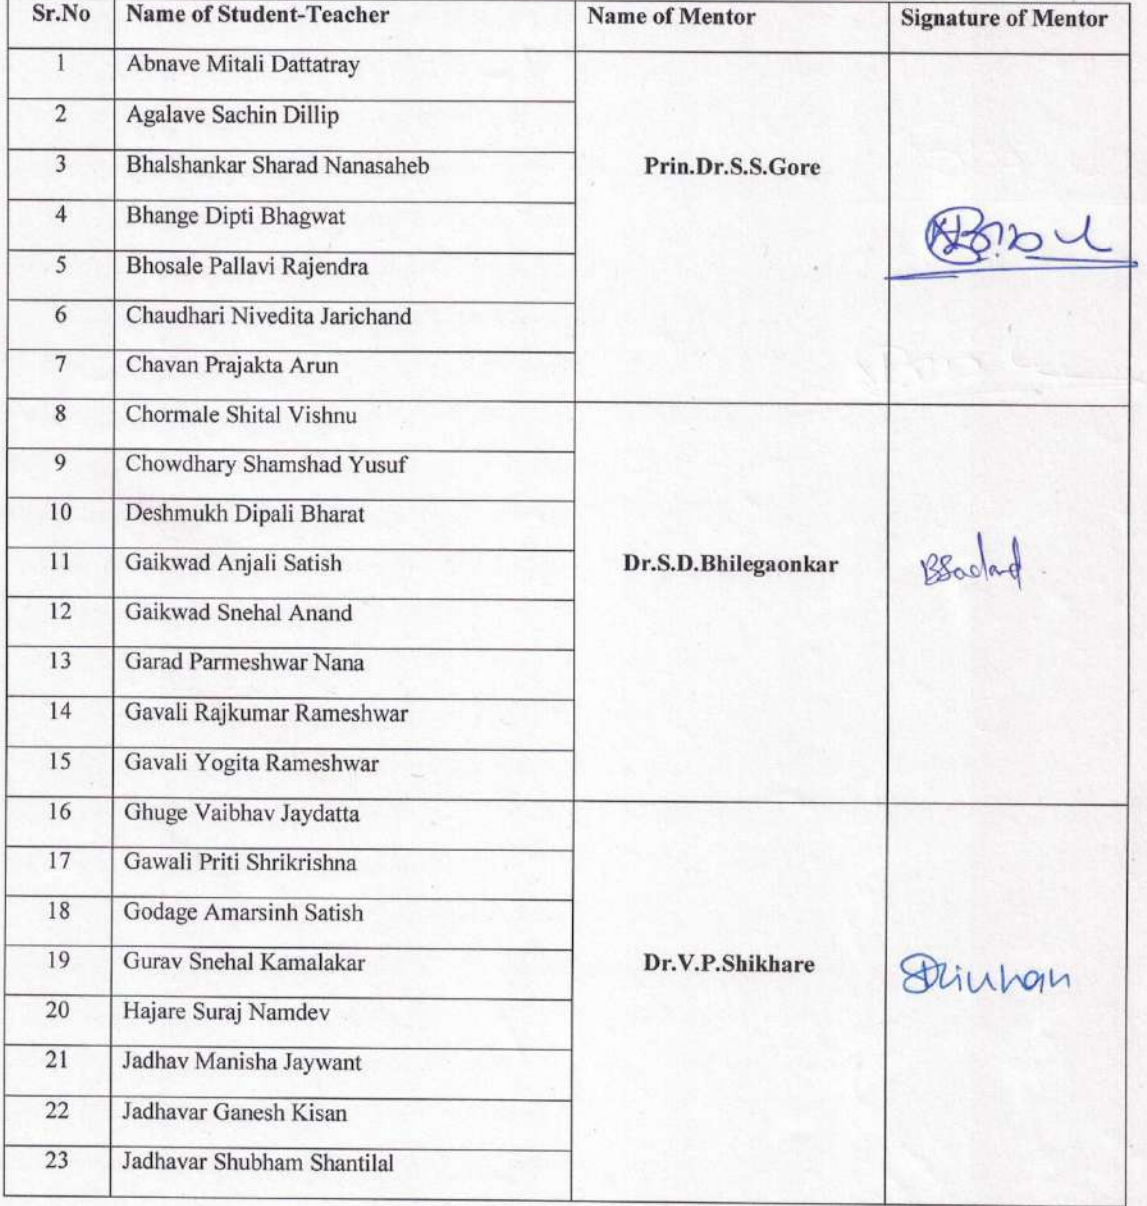 Sr.No Name of Student-Teacher Name of Mentor Signature of Mentor
1 Abnave Mitali Dattatray
2 Agalave Sachin Dillip
3 Bhalshankar Sharad Nanasaheb Prin.Dr.S.S.Gore
4 Bhange Dipti Bhagwat
5 Bhosale Pallavi Rajendra
6 Chaudhari Nivedita Jarichand
7 Chavan Prajakta Arun
8 Chormale Shital Vishnu
9 Chowdhary Shamshad Yusuf
10 Deshmukh Dipali Bharat
11 Gaikwad Anjali Satish Dr.S.D.Bhilegaonkar
12 Gaikwad Snehal Anand
13 Garad Parmeshwar Nana
14 Gavali Rajkumar Rameshwar
15 Gavali Yogita Rameshwar
16 Ghuge Vaibhav Jaydatta
17 Gawali Priti Shrikrishna
18 Godage Amarsinh Satish
19 Gurav Snehal Kamalakar Dr.V.P.Shikhare
20 Hajare Suraj Namdev
21 Jadhav Manisha Jaywant
22 Jadhavar Ganesh Kisan
23 Jadhavar Shubham Shantilal